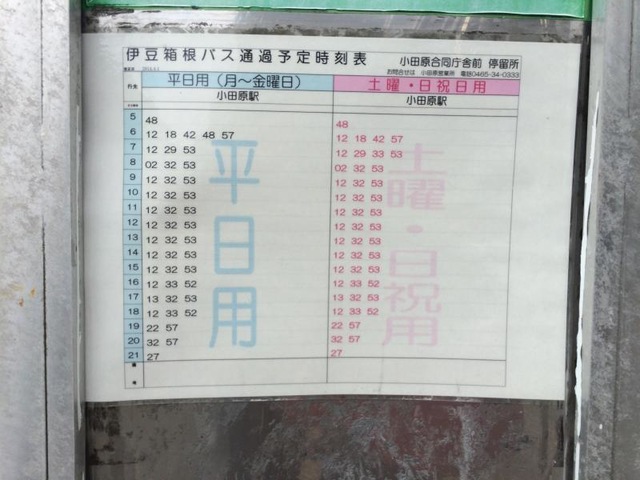 伊豆箱根バス通過予定時刻表
小田原合同庁舎前 停留所
お問合せは 小田原営業所 電話0465-34-0333
行先 平日用(月～金曜日) 土曜・日祝日用
小田原駅 小田原駅
5 48 48
6 12 18 42 48 57 12 18 42 57
7 12 29 53 12 29 33 53
8 02 32 53 02 32 53
9 12 32 53 12 32 53
10 12 32 53 12 32 53
11 12 32 53 12 32 53
12 12 32 53 12 32 53
13 12 32 53 12 32 53
14 12 32 53 12 32 53
15 12 32 53 12 32 53
16 12 33 52 12 33 52
17 13 32 53 13 32 53
18 12 33 52 12 33 52
19 22 57 22 57
20 32 57 32 57
21 27 27
備考
平日用
土曜・日祝用